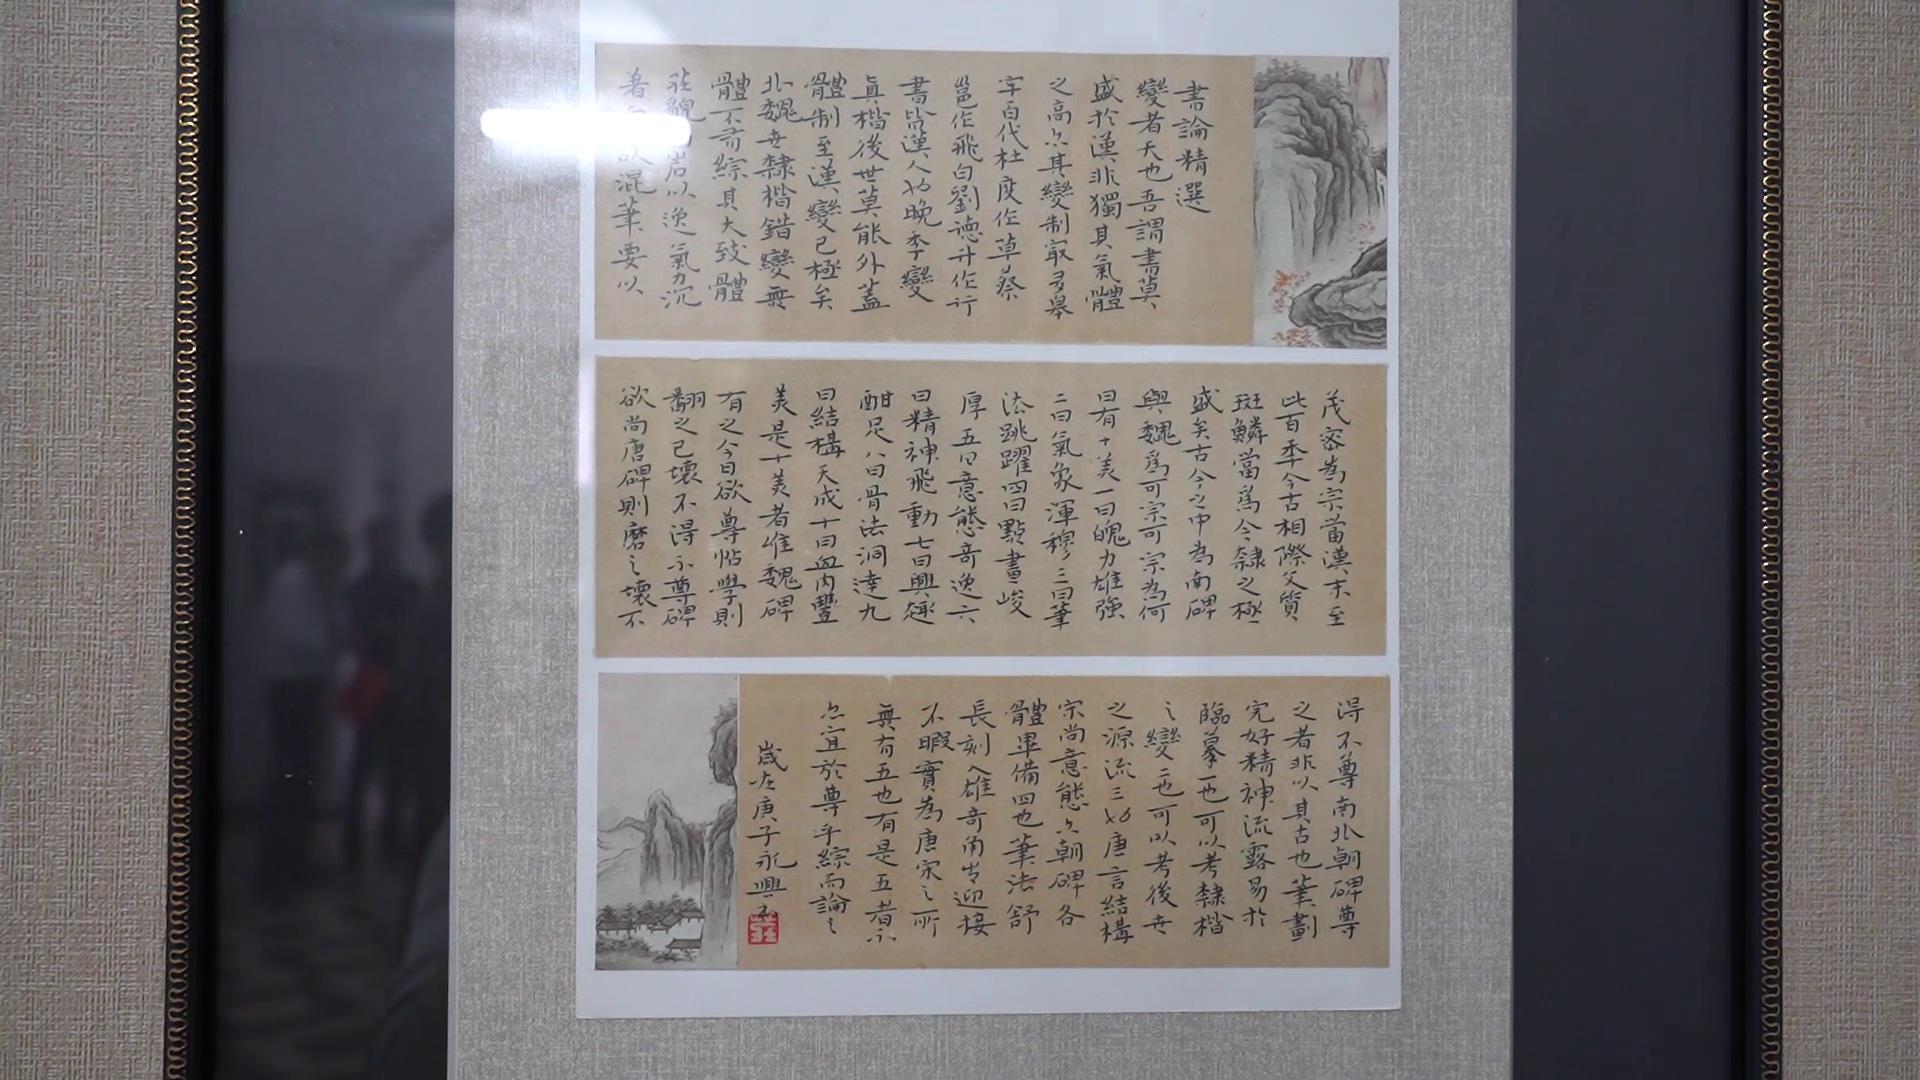 書論精選
變者天也吾謂書莫
盛於漢非獨其氣體
之高亦其變制最多皋
牢百代杜度作草蔡
邕作飛白劉德升作行
書皆漢人也晚季變
真楷後世莫能外蓋
體制至漢變已極矣
北魏世隸楷錯變無
體不有綜其大致體
莊貌 以逸氣為沉
著 混筆要以
茂密為宗當漢末至
此百年今古相際文質
斑鱗當為今隸之極
盛矣古今之中為南碑
與魏為可宗可宗為何
曰有十美一曰魄力雄強
二曰氣象渾穆三曰筆
法跳躍四曰點畫峻
厚五曰意態奇逸六
曰精神飛動七曰興趣
酣足八曰骨法洞達九
曰結構天成十曰血肉豐
美是十美者惟魏碑
有之今日欲尊帖學則
翻之已壞不得不尊碑
欲尚唐碑則磨之壞不
得不尊南北朝碑尊
之者非以其古也筆劃
完好精神流露易於
臨摹一也可以考隸楷
之變二也可以考後世
之源流三也唐言結構
宗尚意態六朝碑各
體畢備四也筆法舒
長刻入雄奇角出迎接
不暇實為唐宋之所
無有五也有是五者不
亦宜於尊乎綜而論之
歲在庚子永興